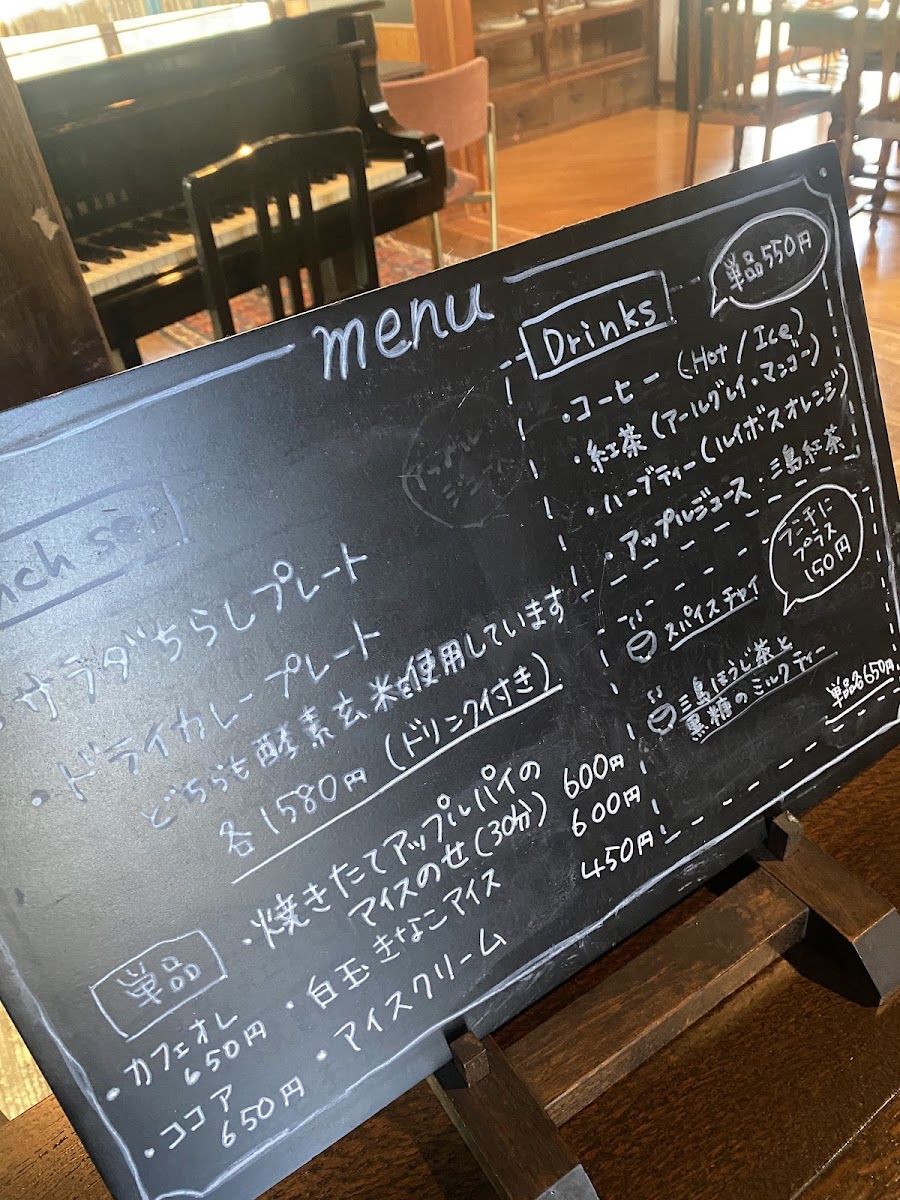 menu
nch set
・サラダちらしプレート
・ドライカレープレート
どちらも酵素玄米を使用しています
各1580円(ドリンク付き)
単品
・焼きたてアップルパイの
アイスのせ(30分) 600円
・白玉きなこアイス 600円
・アイスクリーム 450円
・カフェオレ
650円
・ココア
650円
Drinks
単品550円
・コーヒー (Hot/Ice)
・紅茶(アールグレイ・マンゴー)
・ハーブティー(ルイボスオレンジ)
・アップルジュース・三島紅茶
ランチに
プラス
150円
スパイスチャイ
三島ほうじ茶と
黒糖のミルクティー
単品各650円